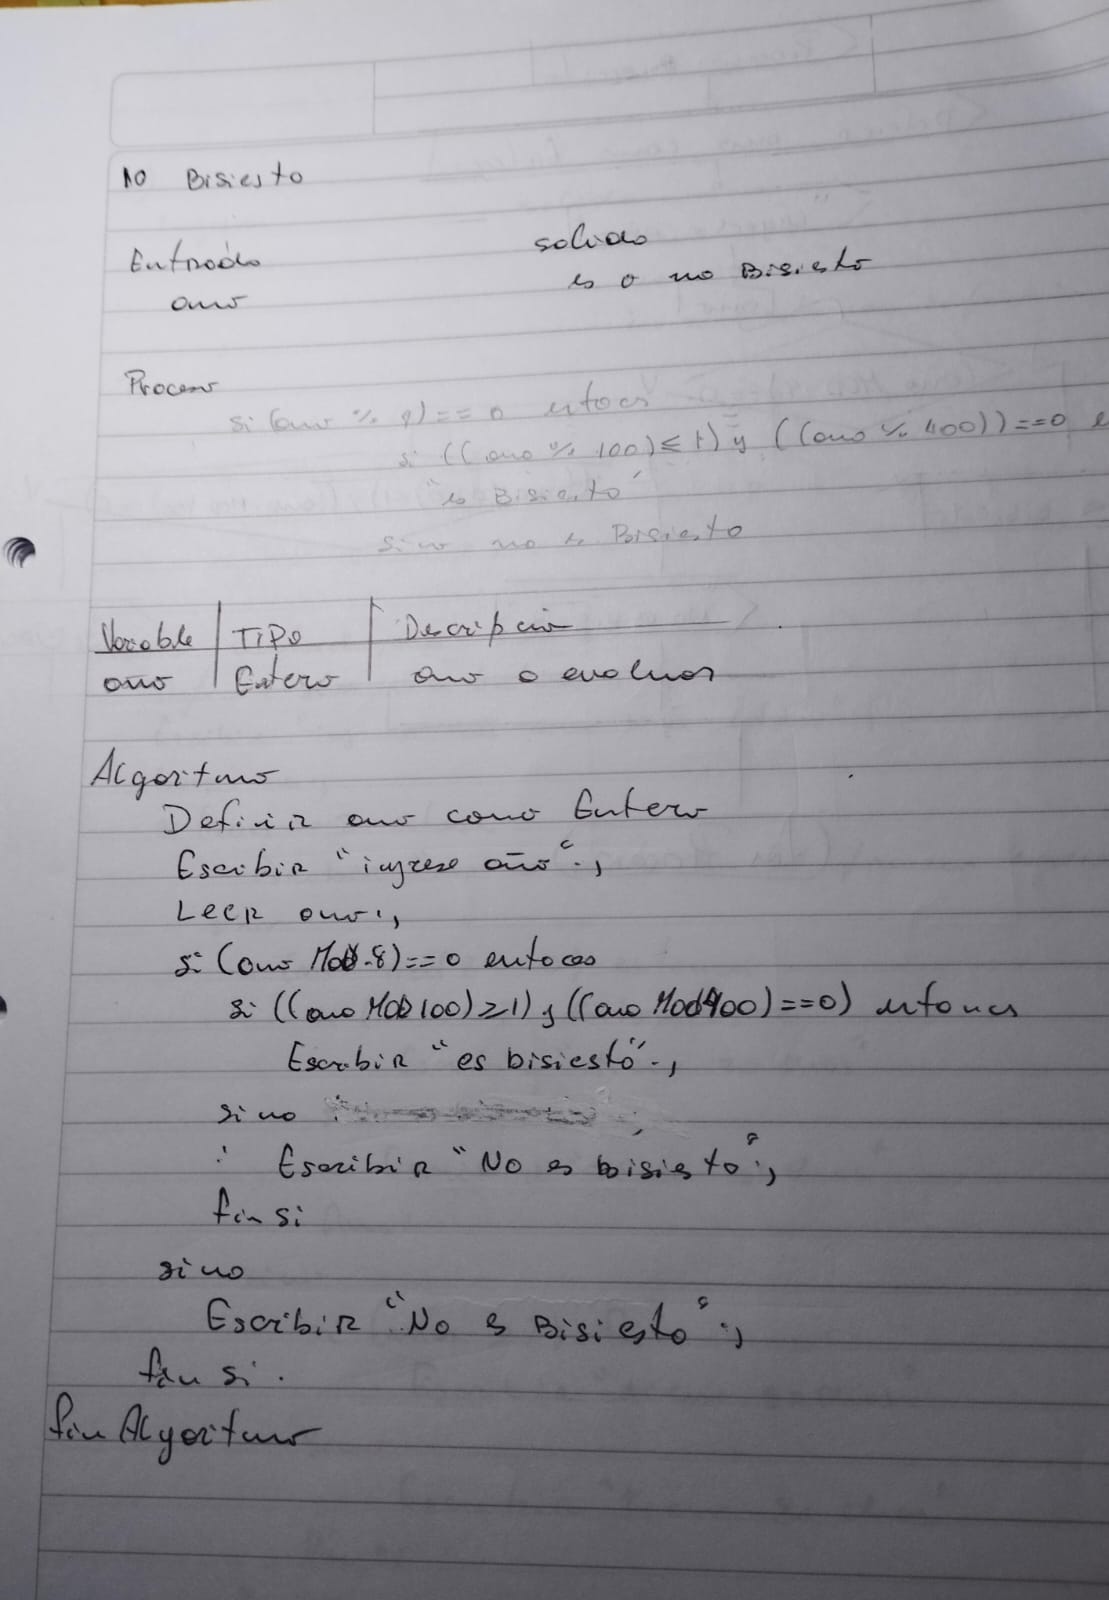 10 Bisiesto
Entrada salida
ano es o no Bisiesto
Proceso
si (ano % 8) == 0 entoces
si ((ano % 100) ≤ 1) y ((ano % 400)) == 0 e
"es Bisiesto"
sino no es Bisiesto
Variable | TIPO | Descripción
año | Entero | ano a evaluar
Algoritmo
Definir ano como Entero
Escribir "ingrese año";
Leer ano;
si (ano Mod 8) == 0 entoces
si ((ano Mod 100) ≥ 1) y ((ano Mod 400) == 0) entonces
Escribir "es bisiesto";
sino
Escribir "No es bisiesto";
finsi
sino
Escribir "No es Bisiesto";
fin si.
fin Algoritmo